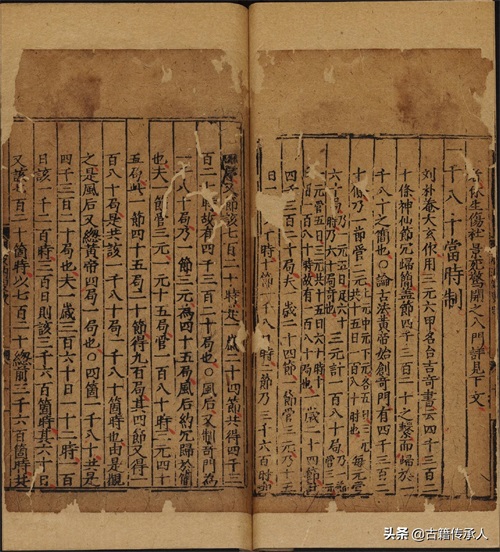 休生傷杜景死驚開之八門詳見下文
一千八十當時制
刘朴春大玄作用三元六甲名台吉奇書云四千三百二
十條神仙節冗歸簡蓋節四千三百二十之繁而歸於一
千八十之簡也〇論古法黃帝始創奇門有四千三百二
十條乃一節管三元共十五日一百八十時每元管
六十局乃一元五日是六十時乃六十局奇也三元計一百八十局乃一節
一元管五日三元共十五日一百八十時故有四
四千三百二十局夫一歲二十四節一節管三元乃十五
日一十時一節乃三千六百時
又一節該七百二十時共一歲二十四節共得四千三
百二十時故有四千三百二十局也〇風后又制奇門為
一千八十局乃一節三元為四十五局風后約冗歸於簡
也夫一節管三元一元十五局管一百八十時二元四十
五局此一節四十五局二十節得九百局共四節又得一
百八十局是共該一千八十局一千八十箇時也由是觀
之是風后又總黃帝四局一局也〇四箇一千八十共是
四千三百二十局也夫一歲三百六十日一日十二時一百
日該一千二百時三百日則該三千六百箇時其六十日
又該七百二十箇時以七百二十總前三千六百箇時共
头条 @古籍传承人